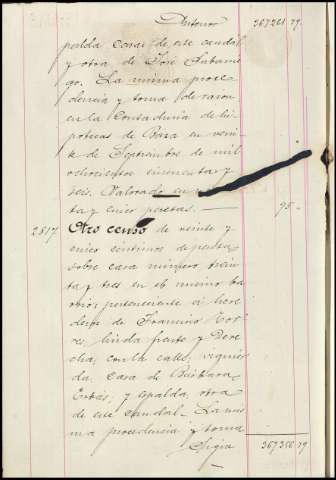 Anterior 367261 79.
palda casas de este caudal
y otra de José Sabarie
go. La misma proce
dencia y toma de razon
en la Contaduria de hi
potecas de Baza en vein
te de Septiembre de mil
ochocientos cincuenta y
seis. Valorado en
ta y cinco pesetas. — 95 -
2817 Otro censo de veinte y
cinco céntimos de peseta
sobre casa número trein
ta y tres en el mismo ba
rrio, perteneciente á here
deros de Francisco Tor
res, linda frente y dere
cha, con la calle, izquier
da, casa de Bárbara
y espalda, otra
de este caudal. La mis
ma procedencia y toma
Sigue 367356 79